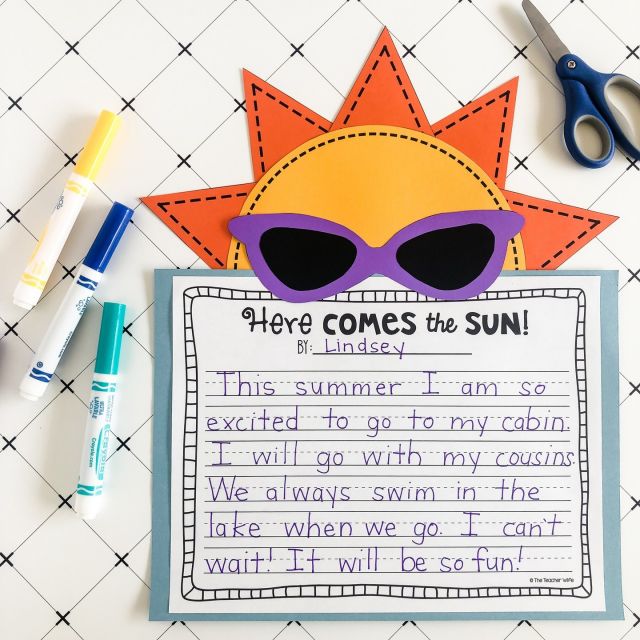 Here COMES the SUN!
BY: Lindsey
This summer I am so
excited to go to my cabin.
I will go with my cousins.
We always swim in the
lake when we go. I can't
wait! It will be so fun!
© The Teacher Wife